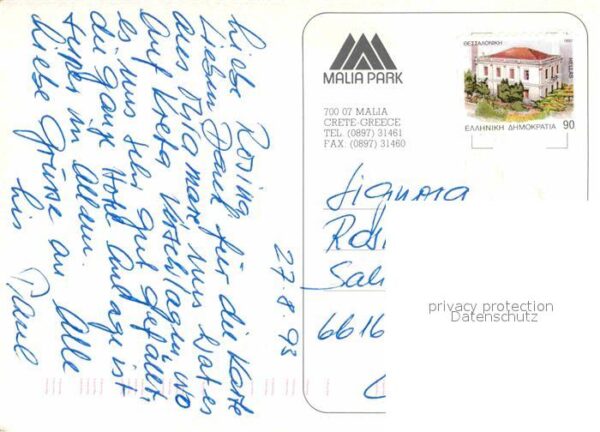 Liebe Rosina
Lieben Dank für die Karte
aus
uns hat es
auf Kreta verschlagen, wo
es uns sehr gut gefällt
die ganze Hotel Anlage ist
super in Allem.
Liebe Grüsse an Alle
bis
27.8.93
MALIA PARK
700 07 MALIA
CRETE-GREECE
TEL. (0897) 31461
FAX: (0897) 31460
ΘΕΣΣΑΛΟΝΙΚΗ
HELLAS
ΕΛΛΗΝΙΚΗ ΔΗΜΟΚΡΑΤΙΑ 90
Signora
Rosi
Sal
6616
privacy protection
Datenschutz